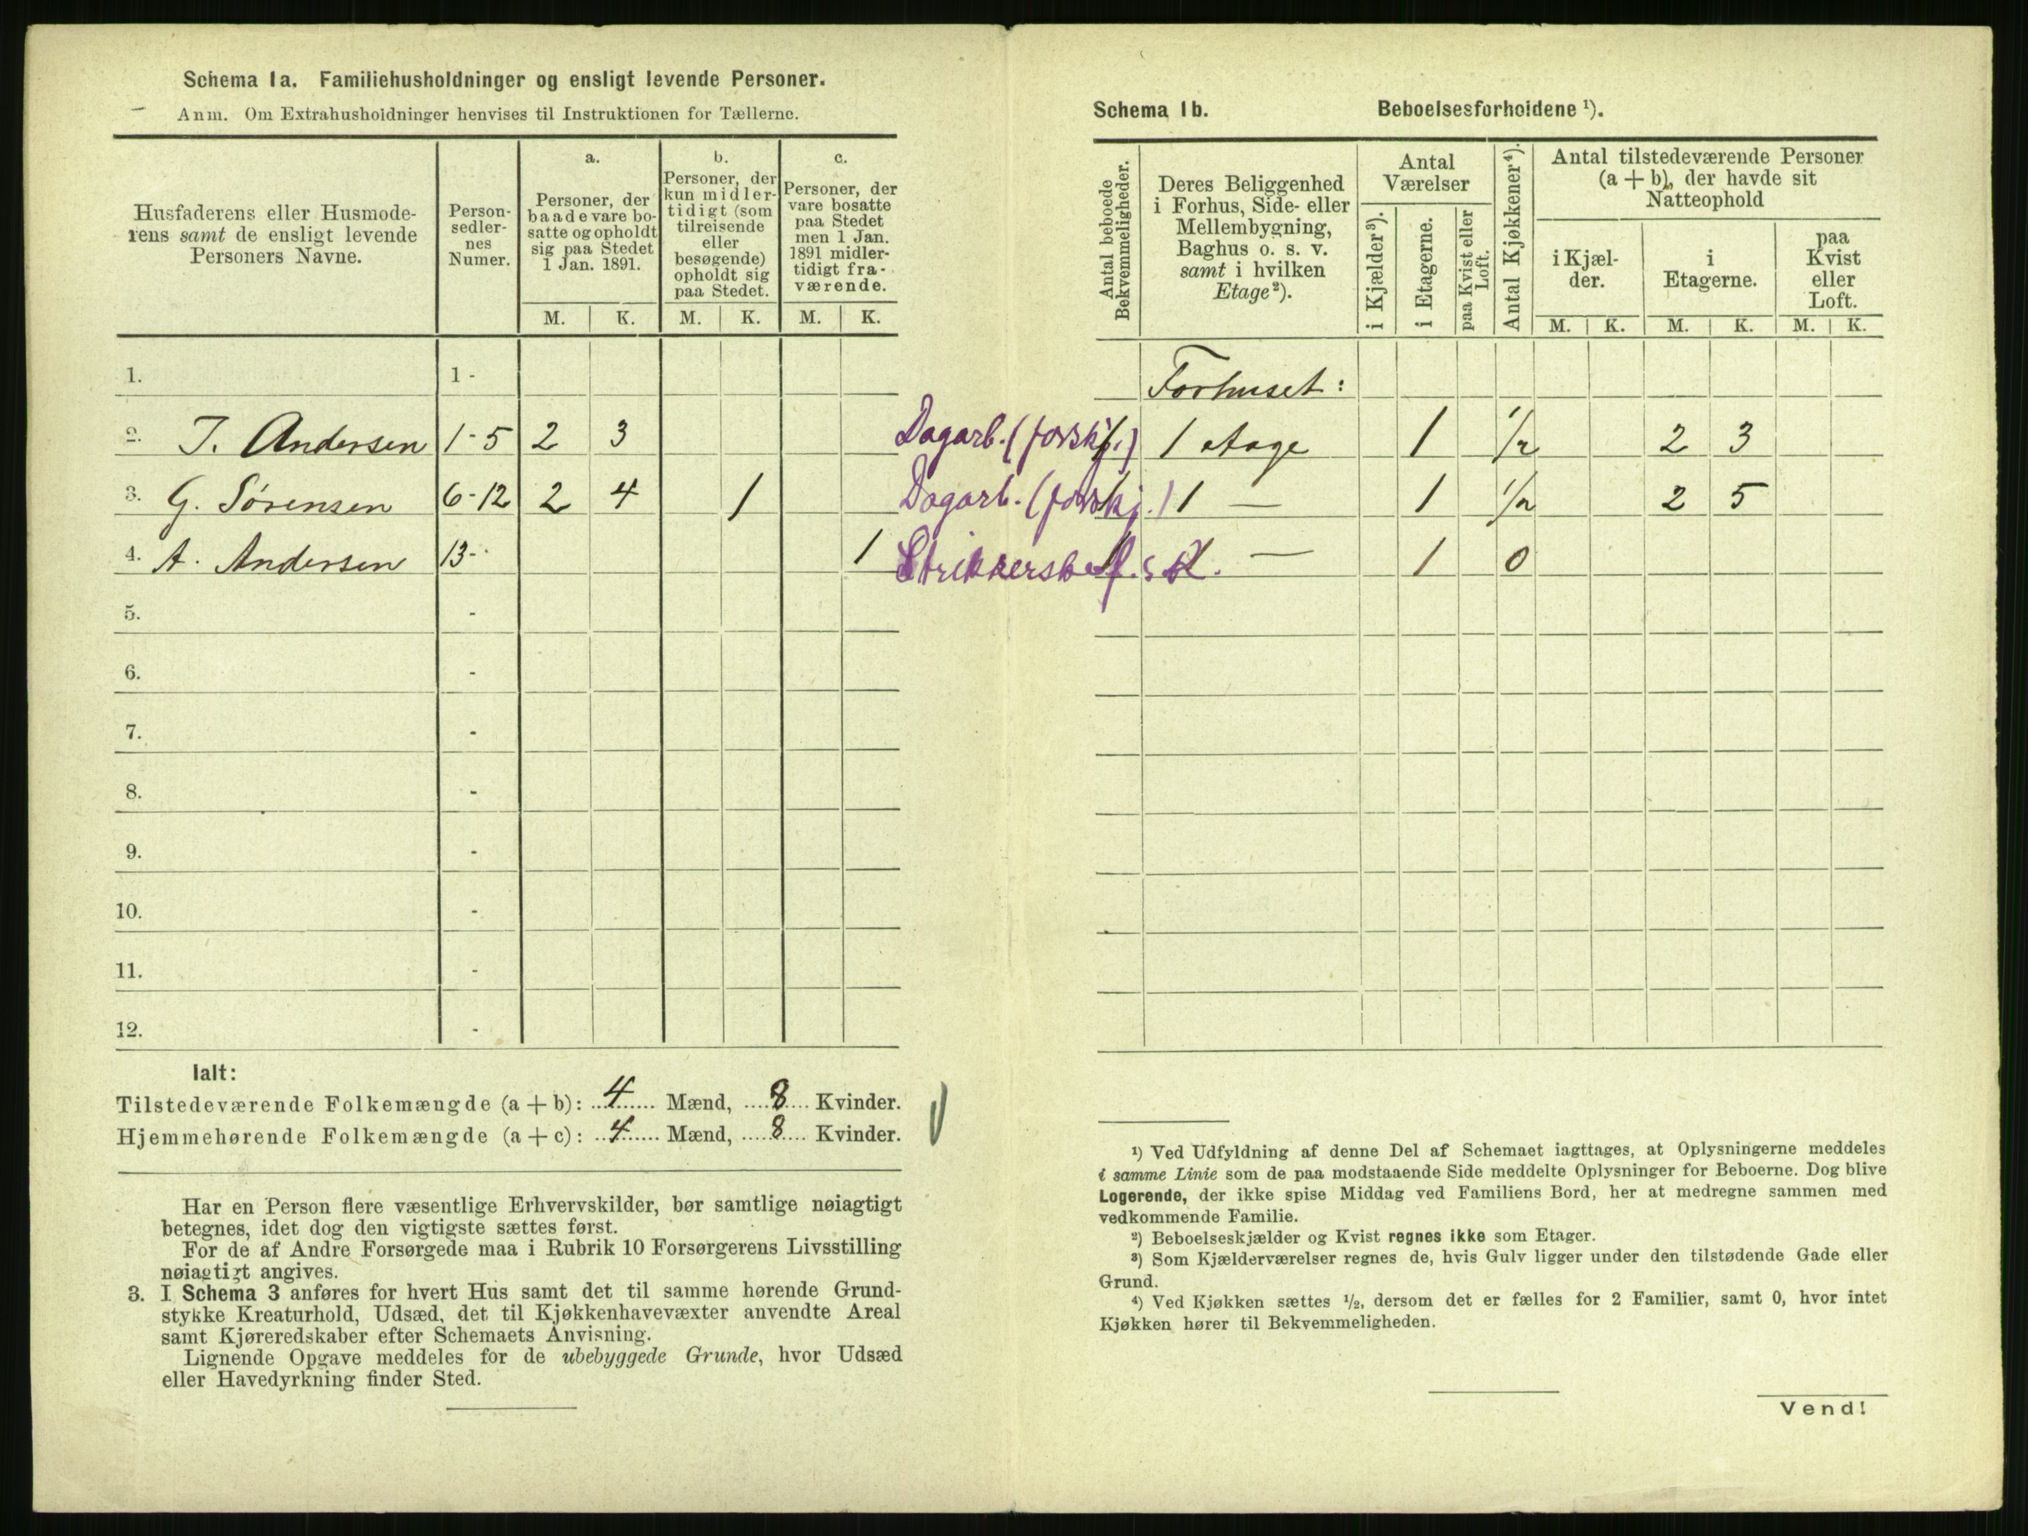 Schema 1a. Familiehusholdninger og ensligt levende Personer.
Anm. Om Extrahusholdninger henvises til Instruktionen for Tællerne.
Husfaderens eller Husmode-
rens samt de ensligt levende
Personers Navne.
Person-
sedler-
nes
Numer.
a.
Personer, der
baade vare bo-
satte og opholdt
sig paa Stedet
1 Jan. 1891.
b.
Personer, der
kun midler-
tidigt (som
tilreisende
eller
besøgende)
opholdt sig
paa Stedet.
c.
Personer, der
vare bosatte
paa Stedet
men 1 Jan.
1891 midler-
tidigt fra-
værende.
M. K. M. K. M. K.
1. 1 -
2. J. Andersen 1-5 2 3
3. G. Sørensen 6-12 2 4 1
4. A. Andersen 13- 1
5. -
6. -
7. -
8. -
9. -
10. -
11. -
12. -
Ialt:
Tilstedeværende Folkemængde (a + b): 4 Mænd, 8 Kvinder.
Hjemmehørende Folkemængde (a + c): 4 Mænd, 8 Kvinder.
Har en Person flere væsentlige Erhvervskilder, bør samtlige nøiagtigt
betegnes, idet dog den vigtigste sættes først.
For de af Andre Forsørgede maa i Rubrik 10 Forsørgerens Livsstilling
nøiagtigt angives.
3. I Schema 3 anføres for hvert Hus samt det til samme hørende Grund-
stykke Kreaturhold, Udsæd, det til Kjøkkenhavevæxter anvendte Areal
samt Kjøreredskaber efter Schemaets Anvisning.
Lignende Opgave meddeles for de ubebyggede Grunde, hvor Udsæd
eller Havedyrkning finder Sted.
Schema 1b. Beboelsesforholdene ¹).
Antal beboede
Bekvemmeligheder.
Deres Beliggenhed
i Forhus, Side- eller
Mellembygning,
Baghus o. s. v.
samt i hvilken
Etage²).
Antal
Værelser
i Kjælder³).
i Etagerne.
paa Kvist eller
Loft.
Antal Kjøkkener⁴).
Antal tilstedeværende Personer
(a + b), der havde sit
Natteophold
i Kjæl-
der.
i
Etagerne.
paa
Kvist
eller
Loft.
M. K. M. K. M. K.
Forhuset:
Dagarb. (forskj.) 1 1 etage 1 1/2 2 3
Dagarb. (forskj.) 1 1 — 1 1/2 2 5
Strikkersk 1 — 1 0
¹) Ved Udfyldning af denne Del af Schemaet iagttages, at Oplysningerne meddeles
i samme Linie som de paa modstaaende Side meddelte Oplysninger for Beboerne. Dog blive
Logerende, der ikke spise Middag ved Familiens Bord, her at medregne sammen med
vedkommende Familie.
²) Beboelseskjælder og Kvist regnes ikke som Etager.
³) Som Kjælderværelser regnes de, hvis Gulv ligger under den tilstødende Gade eller
Grund.
⁴) Ved Kjøkken sættes ½, dersom det er fælles for 2 Familier, samt 0, hvor intet
Kjøkken hører til Bekvemmeligheden.
Vend!